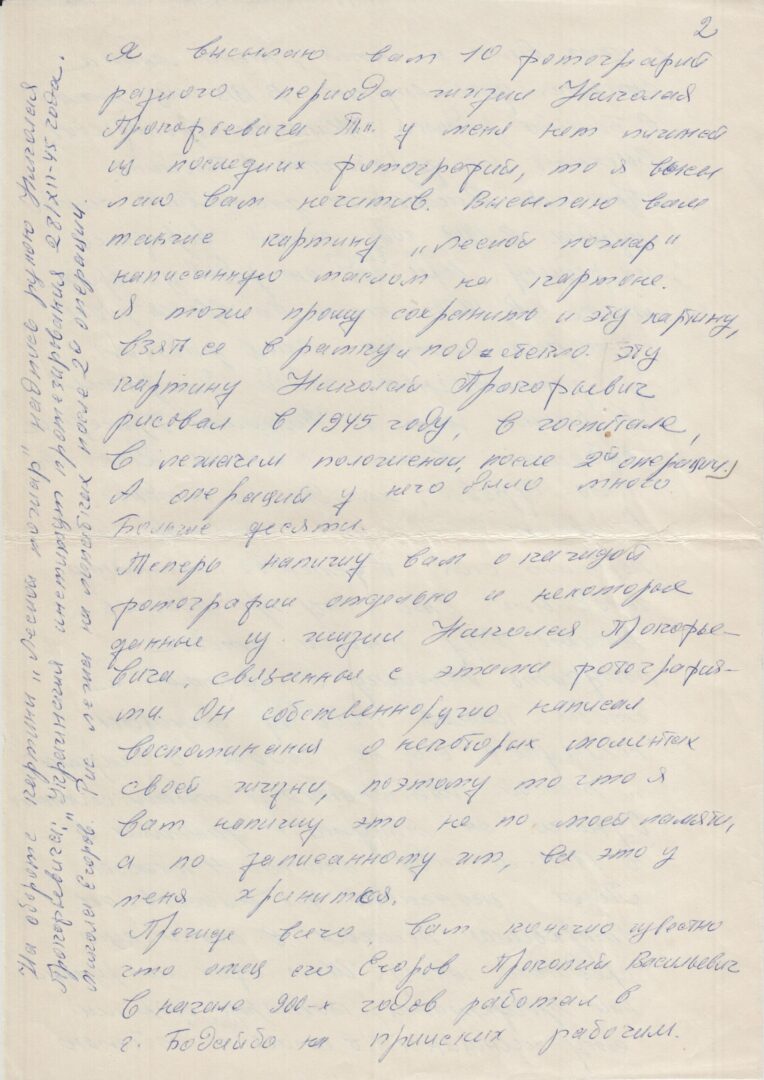 2
Я высылаю вам 10 фотографий
разного периода жизни Николая
Прокофьевича Т.к. у меня нет личной
из последних фотографий, то я высы
лаю вам негатив. Высылаю вам
также картину „Лесной пожар"
написанную маслом на картоне.
Я тоже прошу сохранить и эту картину,
взять ее в рамку и под стекло. Эту
картину Николай Прокофьевич
рисовал в 1945 году, в госпитале,
в лежачем положении, после 2ой операции.
А операций у него было много
больше десяти.
Теперь напишу вам о каждой
фотографии отдельно и некоторые
данные из жизни Николая Прокофье-
вича, связанные с этими фотография-
ми. Он собственноручно написал
воспоминания о некоторых моментах
своей жизни, поэтому то что я
вам напишу это не по моей памяти,
а по записанному им, все это у
меня хранится.
Прежде всего, вам конечно известно
что отец его Егоров Прокопий Васильевич
в начале 900-х годов работал в
г. Бодайбо на приисках рабочим.
На обороте картины „Лесной пожар" надпись рукою Николая
Прокофьевича: „Украинский институт протезирования 28/XII-45 года.
Николай Егоров. Рис. лежа на лопатках после 2й операции.